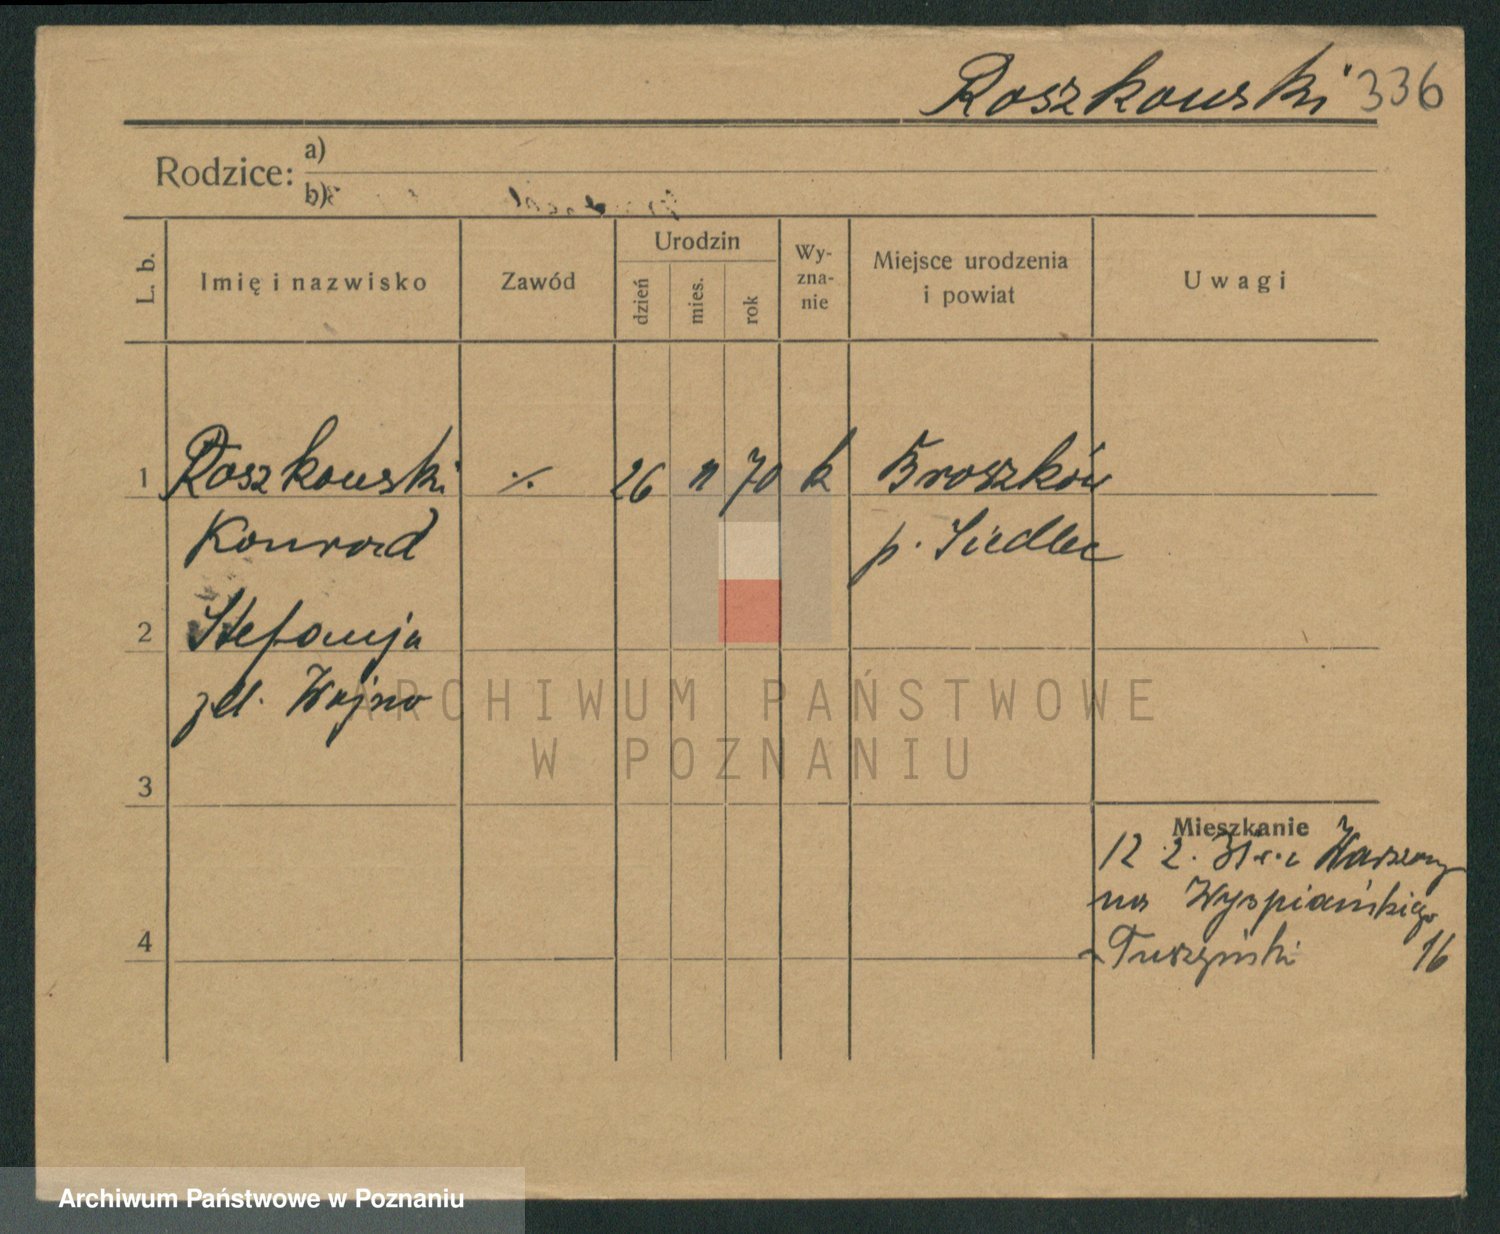 Roszkowski 336
Rodzice: a)
b)
L. b.
Imię i nazwisko
Zawód
Urodzin
dzień
mies.
rok
Wy-
zna-
nie
Miejsce urodzenia
i powiat
Uwagi
1 Roszkowski ./. 26 11 70 k Broszków
Konrad p. Siedlec
2 Stefanja
zd. Wojno
ARCHIWUM PAŃSTWOWE
W POZNANIU
3
Mieszkanie
12 2. 31 r. z Warszawy
na Wyspiańskiego
4 Tuszyński 16
Archiwum Państwowe w Poznaniu